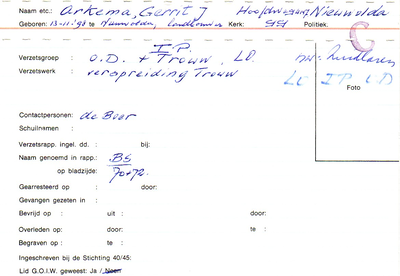 Naam etc.: Arkema, Gerrit J Hoofdweg Nieuwolda
Geboren: 13-11-98 te Nieuwolda, landbouwer Kerk: Politiek.
I.P.
Verzetsgroep : O.D. + Trouw, LO.
Verzetswerk : verspreiding Trouw
C
LO IP OD
Foto
Contactpersonen: de Boer
Schuilnamen :
Verzetsrapp. ingel. dd. : bij:
Naam genoemd in rapp.: BS
op bladzijde: 70+72.
Gearresteerd op : door:
Gevangen gezeten in :
Bevrijd op : uit : door:
Overleden op: door: te :
Begraven op : te :
Ingeschreven bij de Stichting 40/45:
Lid G.O.I.W. geweest: Ja / Neen